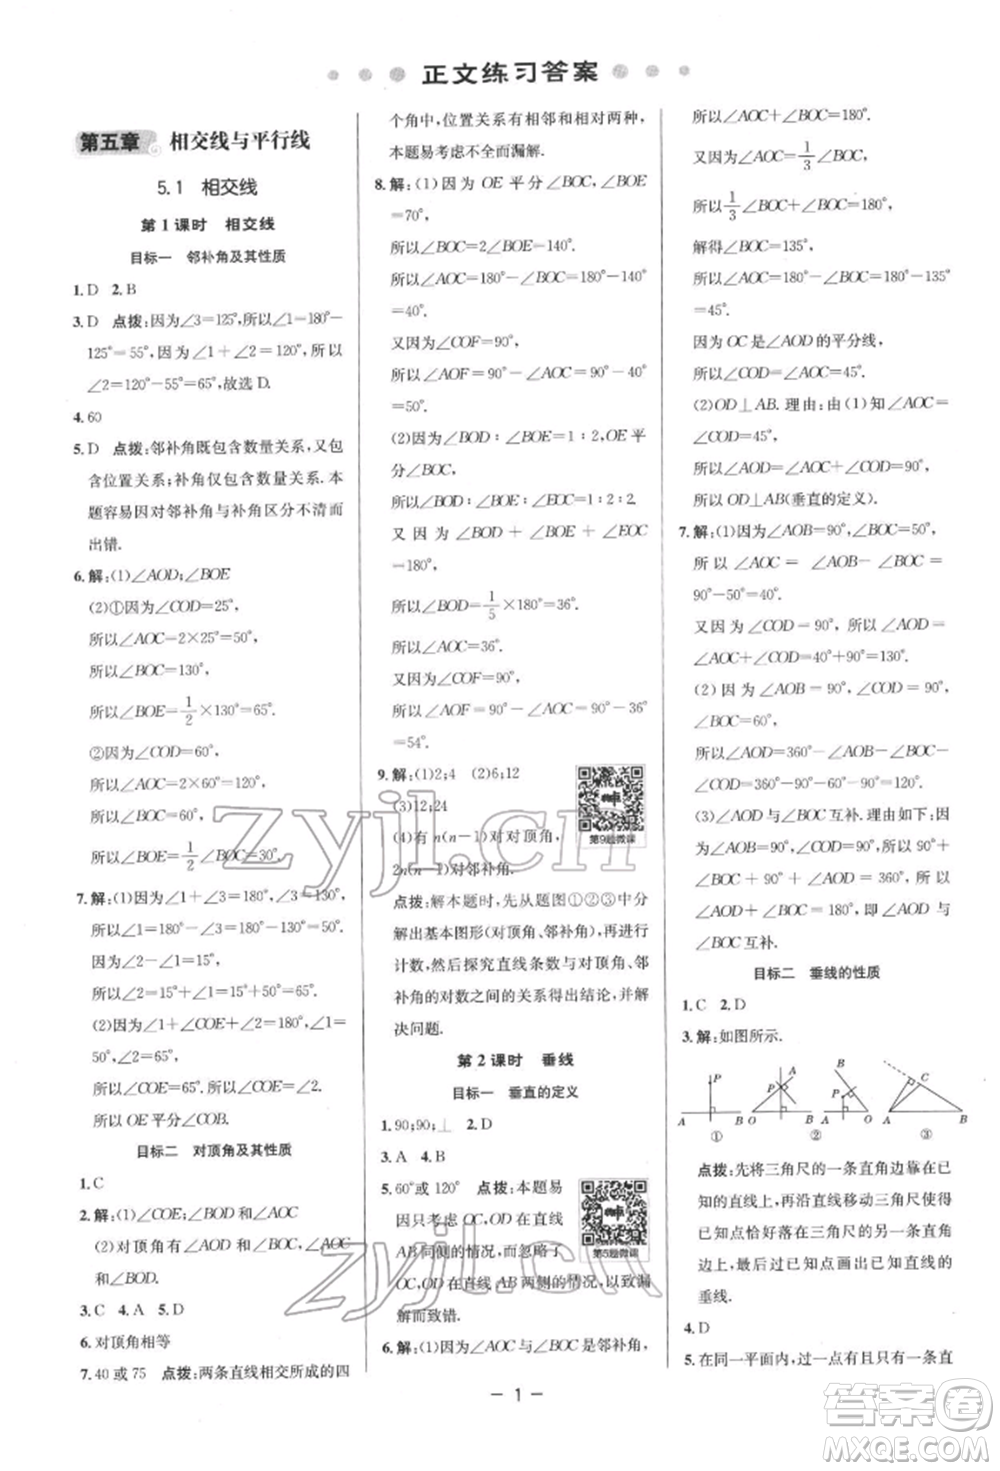 正文练习答案
第五章 相交线与平行线
5.1 相交线
第1课时 相交线
目标一 邻补角及其性质
1. D 2. B
3. D 点拨:因为∠3=125°,所以∠1=180°-
125°=55°,因为∠1+∠2=120°,所以
∠2=120°-55°=65°,故选 D.
4. 60
5. D 点拨:邻补角既包含数量关系,又包
含位置关系;补角仅包含数量关系.本
题容易因对邻补角与补角区分不清而
出错.
6. 解:(1)∠AOD;∠BOE
(2)①因为∠COD=25°,
所以∠AOC=2×25°=50°,
所以∠BOC=130°,
所以∠BOE=1/2×130°=65°.
②因为∠COD=60°,
所以∠AOC=2×60°=120°,
所以∠BOC=60°,
所以∠BOE=1/2∠BOC=30°.
7. 解:(1)因为∠1+∠3=180°,∠3=130°,
所以∠1=180°-∠3=180°-130°=50°.
因为∠2-∠1=15°,
所以∠2=15°+∠1=65°.
(2)因为∠1+∠COE=180°,∠1=
50°,∠2=65°,
所以∠COE=130°,∠2=65°,
所以 OE 平分∠COB.
目标二 对顶角及其性质
1. C
2. 解:(1)∠COE;∠BOD和∠AOC
(2)对顶角为∠AOC和∠BOD,∠COE
和∠BOD.
3. C 4. A 5. D
6. 对顶角相等
7. 40 或 75 点拨:两条直线相交所成的四
个角中,位置关系有相邻和相对两种,
本题易考虑不全而漏解.
8. 解:(1)因为 OE 平分∠BOC,∠BOE
=70°,
所以∠BOC=2∠BOE=140°,
所以∠AOC=180°-∠BOC=180°-140°
=40°.
又因为∠COF=90°,
所以∠AOF=90°-∠AOC=90°-40°
=50°.
(2)因为∠BOD:∠BOE=1:2,OE 平
分∠BOC,
所以∠BOD:∠BOE:∠EOC=1:2:2.
又因为∠BOD+∠BOE+∠EOC
=180°,
所以∠BOD=1/5×180°=36°.
所以∠AOC=36°.
又因为∠COF=90°,
所以∠AOF=90°-∠AOC=90°-36°
=54°.
9. 解:(1)2;4 (2)6;12
(3)12;24
(4)有 n(n-1)对对顶角,
2n(n-1)对邻补角.
第9题微课
点拨:解本题时,先从题图①②③中分
解出基本图形(对顶角、邻补角),再进行
计数,然后探究直线条数与对顶角、邻
补角的对数之间的关系得出结论,并解
决问题.
第2课时 垂线
目标一 垂直的定义
1. 90;90;⊥ 2. D
3. A 4. B
5. 60°或120° 点拨:本题易
因只考虑OC,OD在直线
AB同侧的情况,而忽略了
OC,OD在直线AB两侧的情况,以致漏
解而致错.
第5题微课
6. 解:(1)因为∠AOC与∠BOC是邻补角,
所以∠AOC+∠BOC=180°.
又因为∠AOC=1/3∠BOC,
所以1/3∠BOC+∠BOC=180°,
解得∠BOC=135°,
所以∠AOC=180°-∠BOC=180°-135°
=45°.
因为 OC 是∠AOD 的平分线,
所以∠COD=∠AOC=45°.
(2)OD⊥AB. 理由:由(1)知∠AOC=
∠COD=45°,
所以∠AOD=∠AOC+∠COD=90°,
所以 OD⊥AB(垂直的定义).
7. 解:(1)因为∠AOB=90°,∠BOC=50°,
所以∠AOC=∠AOB-∠BOC=
90°-50°=40°.
又因为∠COD=90°,所以∠AOD=
∠AOC+∠COD=40°+90°=130°.
(2)因为∠AOB=90°,∠COD=90°,
∠BOC=60°,
所以∠AOD=360°-∠AOB-∠BOC-
∠COD=360°-90°-60°-90°=120°.
(3)∠AOD与∠BOC互补.理由如下:
因为∠AOB=∠COD=90°,所以90°+
∠BOC+90°+∠AOD=360°,所以
∠AOD+∠BOC=180°,即∠AOD与
∠BOC互补.
目标二 垂线的性质
1. C 2. D
3. 解:如图所示.
P A B ①
P A O B ②
B P O A
C A B ③
点拨:先将三角尺的一条直角边靠在已
知的直线上,再沿直线移动三角尺,使
已知点恰好落在三角尺的另一条直角
边上,过已知点画出已知直线的
垂线.
4. D
5. 在同一平面内,过一点有且只有一条直
- 1 -
zyjl.cn
zyjl.cn
答案圈
MXQE.COM